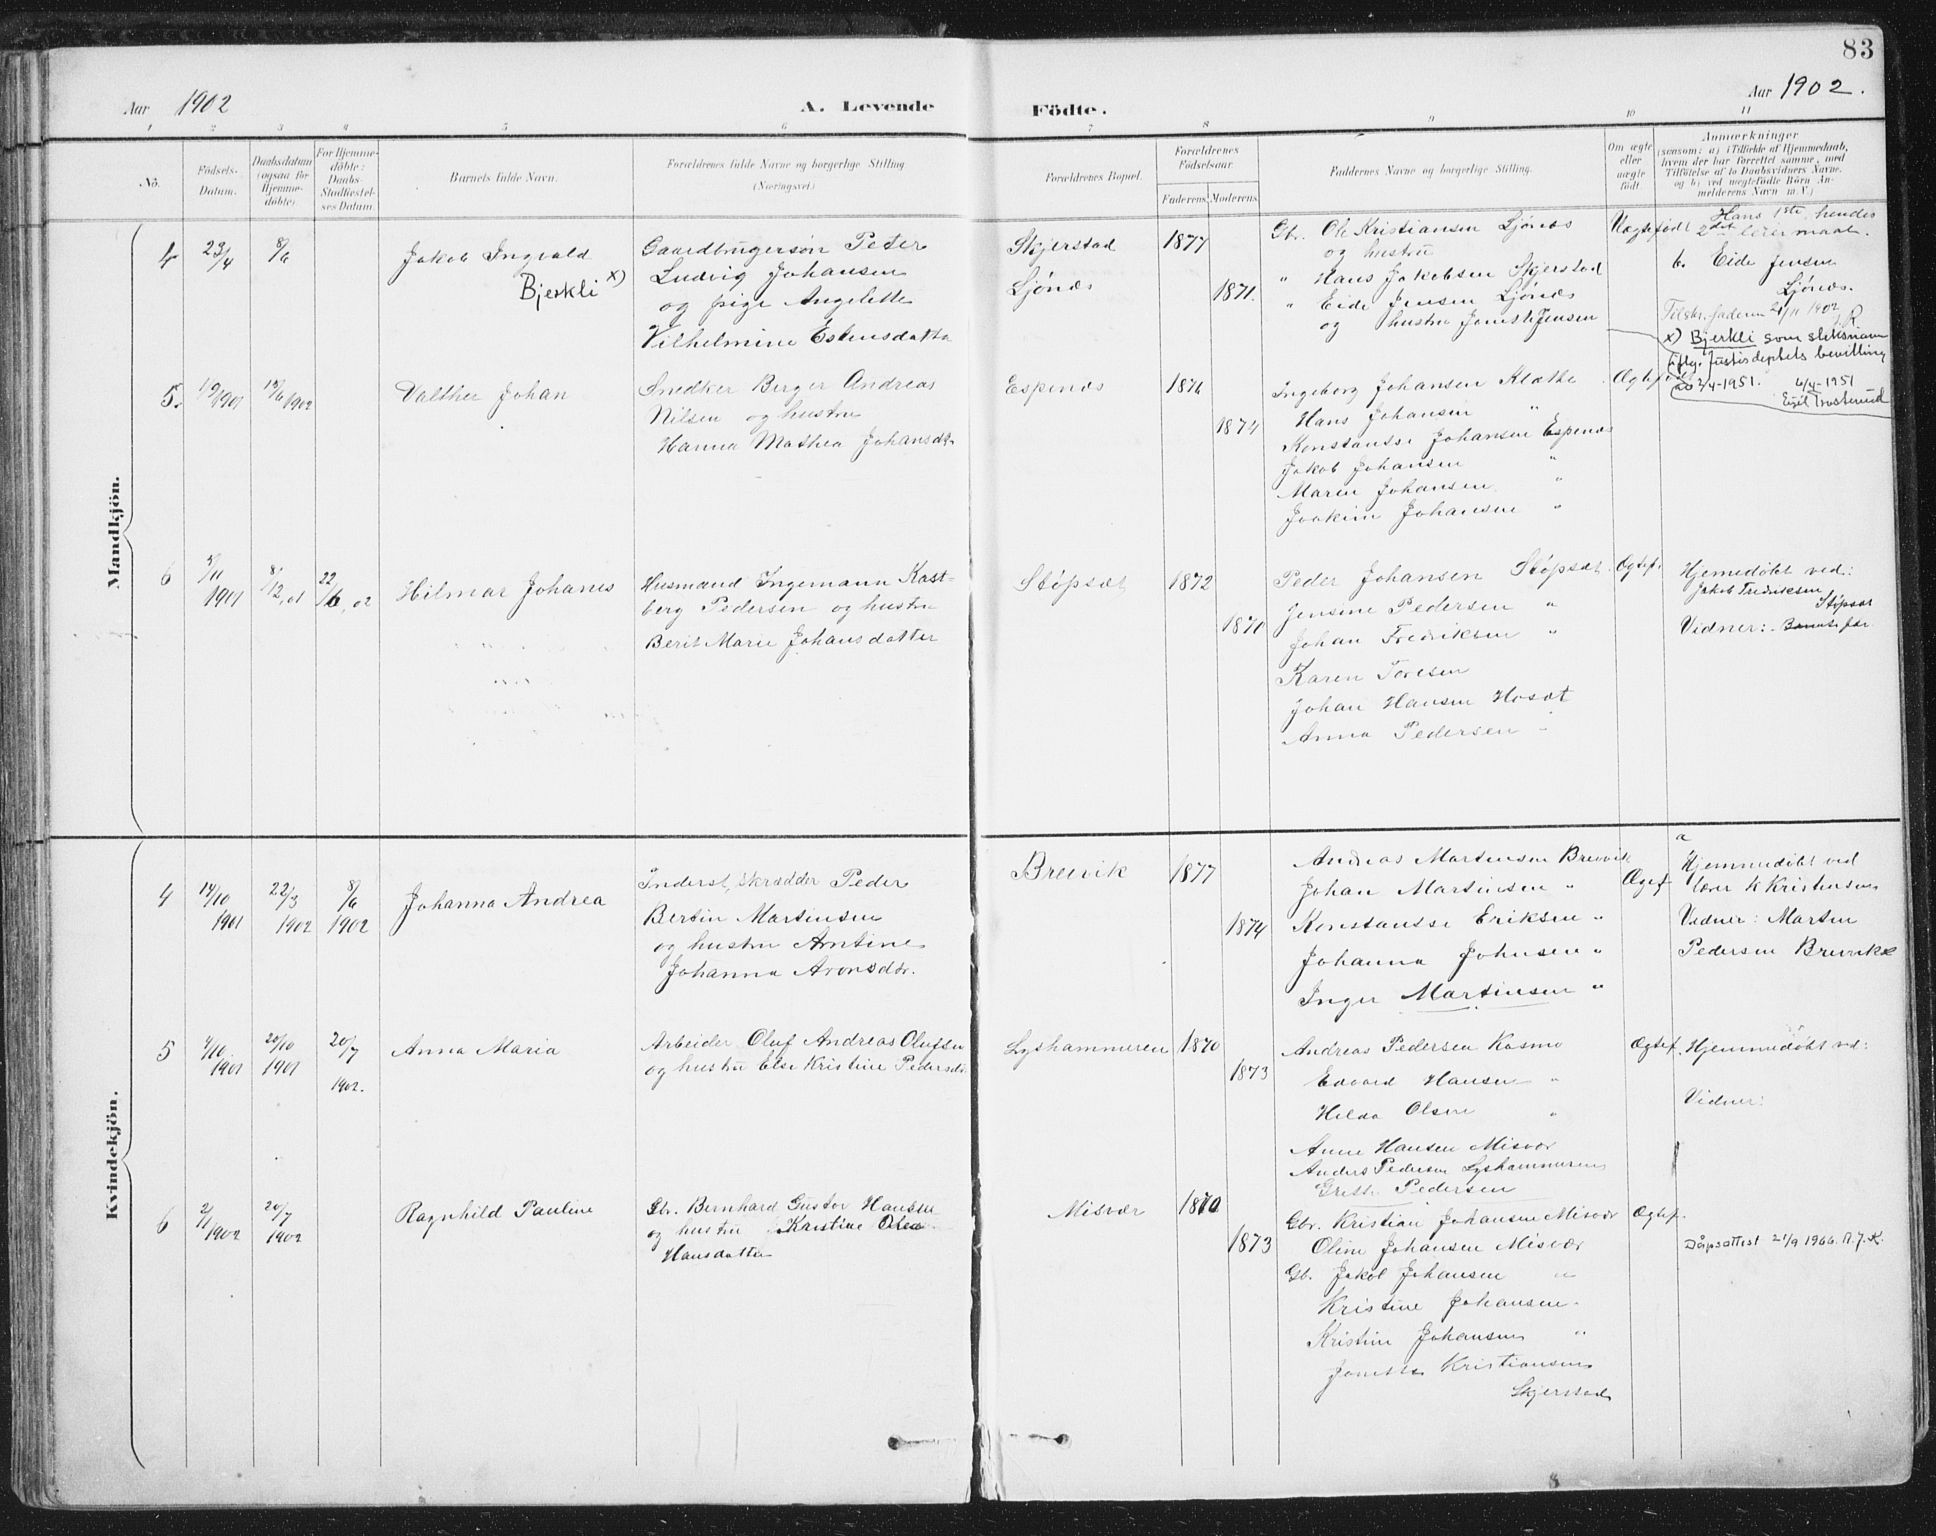 83
Aar 1902
A. Levende
Födte.
Aar 1902.
1 2 3 4 5 6 7 8 9 10 11
No.
Födsels-
Datum.
Daabsdatum
(ogsaa for
Hjemme-
döbte)
For Hjemme-
döbte:
Daabs-
Stadfæstel-
ses Datum.
Barnets fulde Navn.
Forældrenes fulde Navne og borgerlige Stilling
(Næringsvei)
Forældrenes Bopæl.
Forældrenes
Födselsaar.
Faderens. Moderens.
Faddernes Navne og borgerlige Stilling.
Om ægte
eller
uægte
födt.
Anmærkninger
(saasom: a) i Tilfælde af Hjemmedaab,
hvem der har forrettet samme, med
Tilföielse af to Daabsvidners Navne.
og b) ved uægtefödte Börn An-
melderens Navn m. V.)
Mandkjön.
4
23/4
8/6
Jakob Ingvald
Bjerkli x)
Gaardbrugersøn Peter
Ludvig Johansen
og pige Angelette
Vilhelmine Estensdatter
Skjerstad
Ljönes
1877
1871.
Gbr. Ole Kristiansen Ljönes
og hustru
" Hans Jakobsen Skjerstad
" Eide Jensen Ljönes
og hustru Jensen
Uægtefödt
Hans 1ste hendes
2det leiermaal.
b. Eide Jensen
Ljönes.
Tilskr. faderen 21/11 1902
x) Bjerkli som slektsnavn
iflg. Justisdeptets bevilling
av 2/4-1951. 6/4-1951
Egil Trosterud
5.
19/1901
15/6 1902
Valther Johan
Snedker Berger Andreas
Nilsen og hustru
Hanna Mathea Johansdtr
Espenes
1876
1874
Ingeborg Johansen Klæthe
Hans Johansen "
Konstanse Johansen Espenes
Jakob Johansen "
Maren Johansen "
Joakim Johansen "
Ægtefödt
6
5/11
1901
8/12, 01
22/6, 02
Hilmar Johanes
Husmand Ingemann Kast-
berg Pedersen og hustru
Berit Marie Johansdatter
Stöpsæt
1872
1871
Peder Johansen Stöpsæt
Jensine Pedersen "
Johan Fredriksen "
Karen Toresen
Johan Hansen Hosæt
Anna Pedersen "
Ægtef.
Hjemedöbt ved:
Jakob Fredriksen
Stöpsæt
Vidner: Barnets far
Kvindekjön.
4
14/10
1901
22/3
1902
8/6
1902
Johanna Andrea
Inderst, skrædder Peder
Bertin Martinsen
og hustru Arntine
Johanna Aronsdtr.
Breivik
1877
1874
Andreas Martinsen Breivik
Johan Martinsen "
Konstanse Eriksen "
Johanna Johnsen "
Inger Martinsen "
Ægtef.
a
Hjemmedöbt ved
lærer K Kristensen
Vidner: Martin
Pedersen Breivik
5
4/10
1901
20/10
1901
20/7
1902.
Anna Maria
Arbeider Oluf Andreas Olufsen
og hustru Else Kristine Pedersdtr.
Lyshammeren
1870
1873
Andreas Pedersen Kosmo
Edvard Hansen "
Hilda Olsen "
Anne Hansen Misvær
Anders Pedersen Lyshammeren
Grethe Pedersen
Ægtef.
Hjemmedöbt ved:
Vidner:
6
2/1 1902
20/7
1902
Ragnhild Pauline
Gbr. Bernhard Gustav Hansen
og hustru Kristine Olea
Hansdatter
Misvær
1870
1873
Gbr. Kristian Johansen Misvær
Oline Johansen Misvær
Gb. Jakob Johansen "
Kristine Johansen "
Kristine Johansen "
Kristiansen
Skjerstad
Ægtef.
Dåpsattest 21/9 1966. R.J.K.